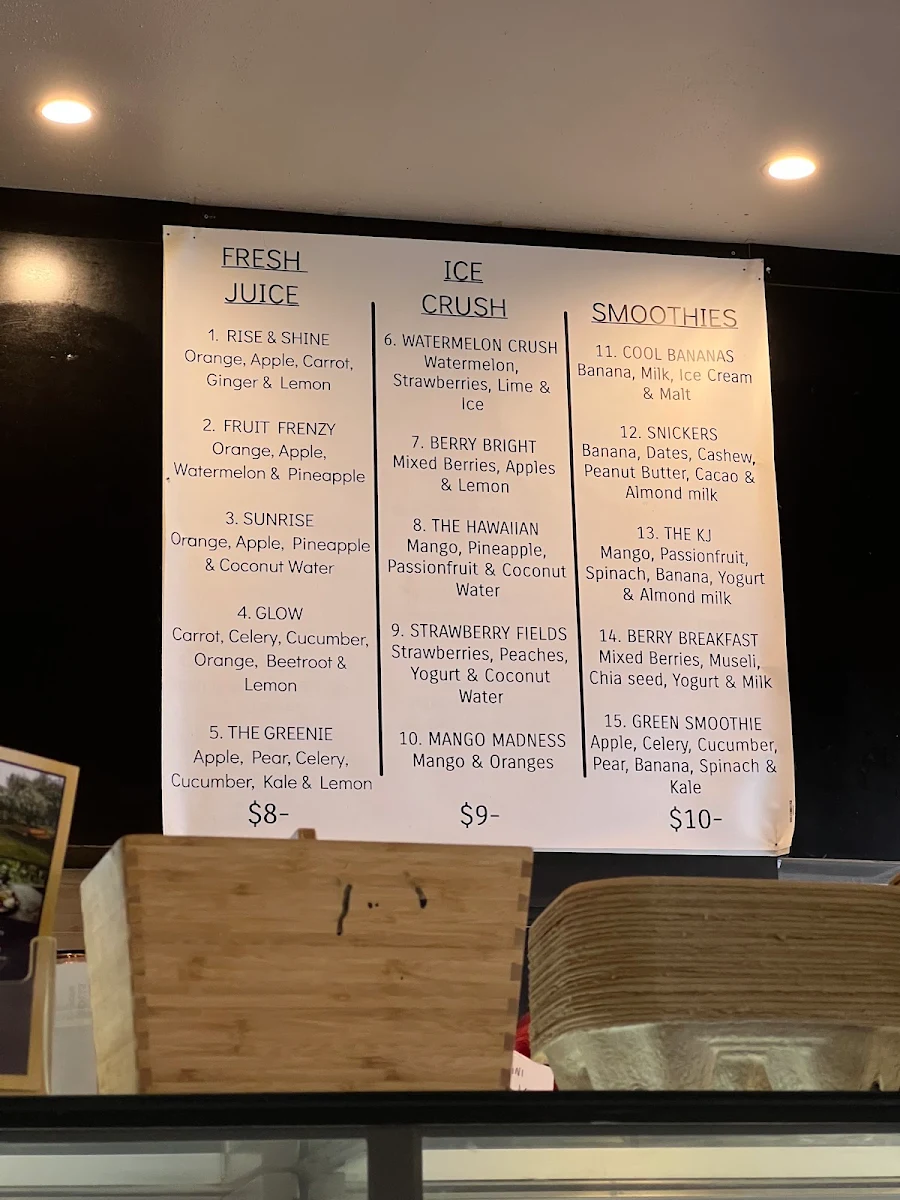 FRESH
JUICE
1. RISE & SHINE
Orange, Apple, Carrot,
Ginger & Lemon
2. FRUIT FRENZY
Orange, Apple,
Watermelon & Pineapple
3. SUNRISE
Orange, Apple, Pineapple
& Coconut Water
4. GLOW
Carrot, Celery, Cucumber,
Orange, Beetroot &
Lemon
5. THE GREENIE
Apple, Pear, Celery,
Cucumber, Kale & Lemon
$8-
ICE
CRUSH
6. WATERMELON CRUSH
Watermelon,
Strawberries, Lime &
Ice
7. BERRY BRIGHT
Mixed Berries, Apples
& Lemon
8. THE HAWAIIAN
Mango, Pineapple,
Passionfruit & Coconut
Water
9. STRAWBERRY FIELDS
Strawberries, Peaches,
Yogurt & Coconut
Water
10. MANGO MADNESS
Mango & Oranges
$9-
SMOOTHIES
11. COOL BANANAS
Banana, Milk, Ice Cream
& Malt
12. SNICKERS
Banana, Dates, Cashew,
Peanut Butter, Cacao &
Almond milk
13. THE KJ
Mango, Passionfruit,
Spinach, Banana, Yogurt
& Almond milk
14. BERRY BREAKFAST
Mixed Berries, Museli,
Chia seed, Yogurt & Milk
15. GREEN SMOOTHIE
Apple, Celery, Cucumber,
Pear, Banana, Spinach &
Kale
$10-